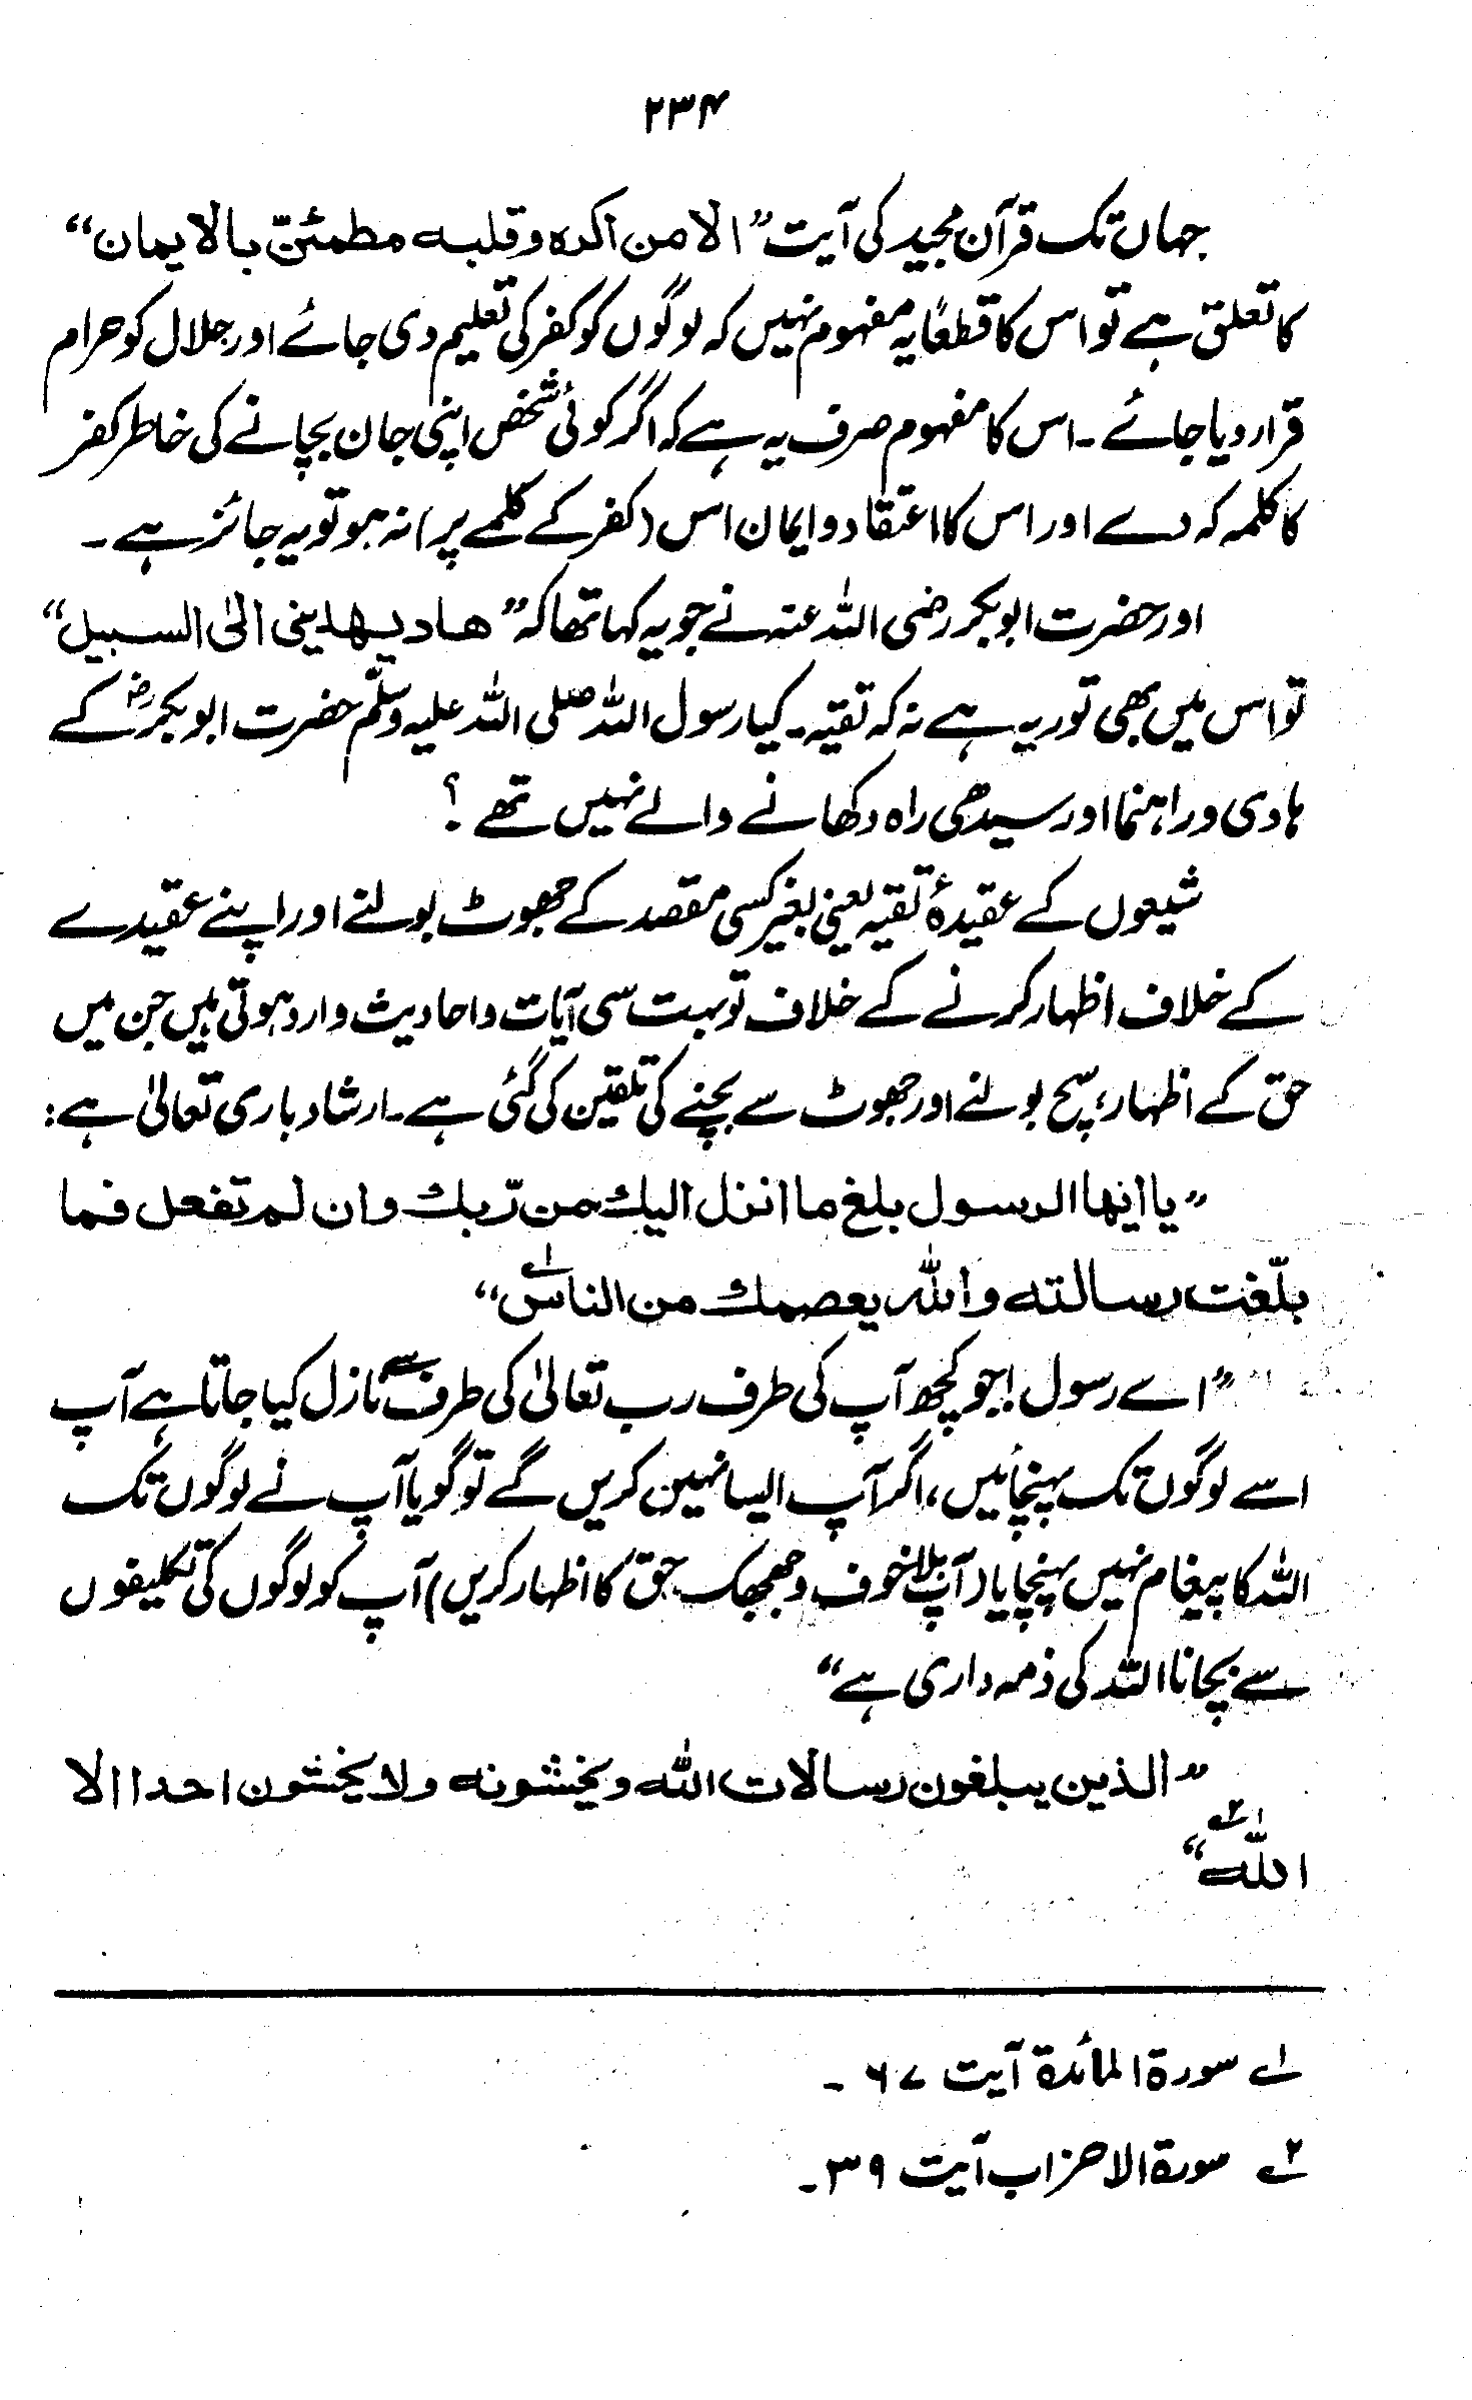 ۲۳۴
جہاں تک قرآن مجید کی آیت ”الا من اکرہ وقلبہ مطمئنّ بالایمان“
کا تعلق ہے تو اس کا قطعًا یہ مفہوم نہیں کہ لوگوں کو کفر کی تعلیم دی جائے اور حلال کو حرام
قرار دیا جائے ۔ اس کا مفہوم صرف یہ ہے کہ اگر کوئی شخص اپنی جان بچانے کی خاطر کفر
کا کلمہ کہ دے اور اس کا اعتقاد و ایمان اس (کفر کے کلمے پر) نہ ہو تو یہ جائز ہے ۔
اور حضرت ابوبکر رضی اللہ عنہ نے جو یہ کہا تھا کہ ”ھاد یھدینی الی السبیل“
تو اس میں بھی توریہ ہے نہ کہ تقیہ ۔ کیا رسول اللہ صلی اللہ علیہ وسلّم حضرت ابوبکرؓ کے
ہادی و راہنما اور سیدھی راہ دکھانے والے نہیں تھے ؟
شیعوں کے عقیدۂ تقیہ یعنی بغیر کسی مقصد کے جھوٹ بولنے اور اپنے عقیدے
کے خلاف اظہار کرنے کے خلاف تو بہت سی آیات و احادیث وارد ہوتی ہیں جن میں
حق کے اظہار، سچ بولنے اور جھوٹ سے بچنے کی تلقین کی گئی ہے ۔ ارشاد باری تعالیٰ ہے :
”یا ایھا الرسول بلغ ما انزل الیك من رّبك وان لم تفعل فما
بلّغت رسالته والله یعصمك من الناس ۱؎“
”اے رسول ! جو کچھ آپ کی طرف رب تعالیٰ کی طرف سے نازل کیا جاتا ہے آپ
اسے لوگوں تک پہنچائیں، اگر آپ ایسا نہیں کریں گے تو گویا آپ نے لوگوں تک
اللہ کا پیغام نہیں پہنچایا (آپ بلا خوف و جھجھک حق کا اظہار کریں) آپ کو لوگوں کی تکلیفوں
سے بچانا اللہ کی ذمہ داری ہے“
”الذین یبلغون رسالات الله ویخشونه ولا یخشون احدا الا
الله ۲؎“
۱؎ سورة المائدة آیت ۶۷ ۔
۲؎ سورة الاحزاب آیت ۳۹ ۔